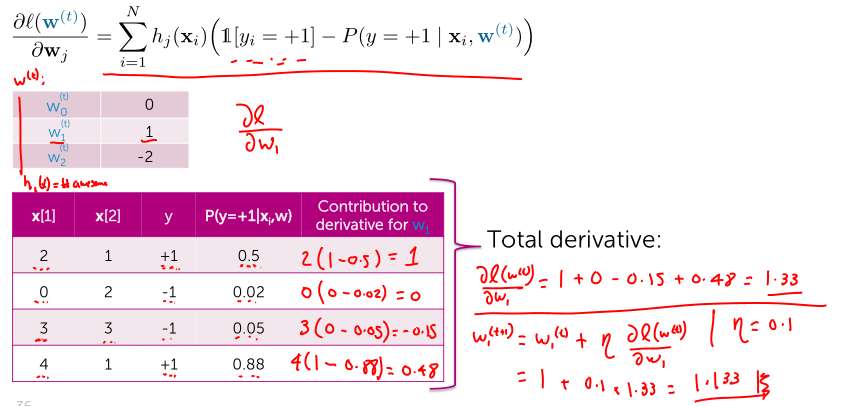 ∂ℓ(w^(t))/∂w_j = Σ_{i=1}^{N} h_j(x_i)(𝟙[y_i = +1] − P(y = +1 | x_i, w^(t)))
w^(t):
w_0^(t) 0
w_1^(t) 1
w_2^(t) -2
∂ℓ/∂w_1
h_1(x) = # awesome
x[1] x[2] y P(y=+1|x_i,w) Contribution to derivative for w_1
2 1 +1 0.5 2(1-0.5) = 1
0 2 -1 0.02 0(0-0.02) = 0
3 3 -1 0.05 3(0-0.05) = -0.15
4 1 +1 0.88 4(1-0.88) = 0.48
Total derivative:
∂ℓ(w^(t))/∂w_1 = 1 + 0 - 0.15 + 0.48 = 1.33
w_1^(t+1) = w_1^(t) + η ∂ℓ(w^(t))/∂w_1 | η = 0.1
= 1 + 0.1 * 1.33 = 1.133